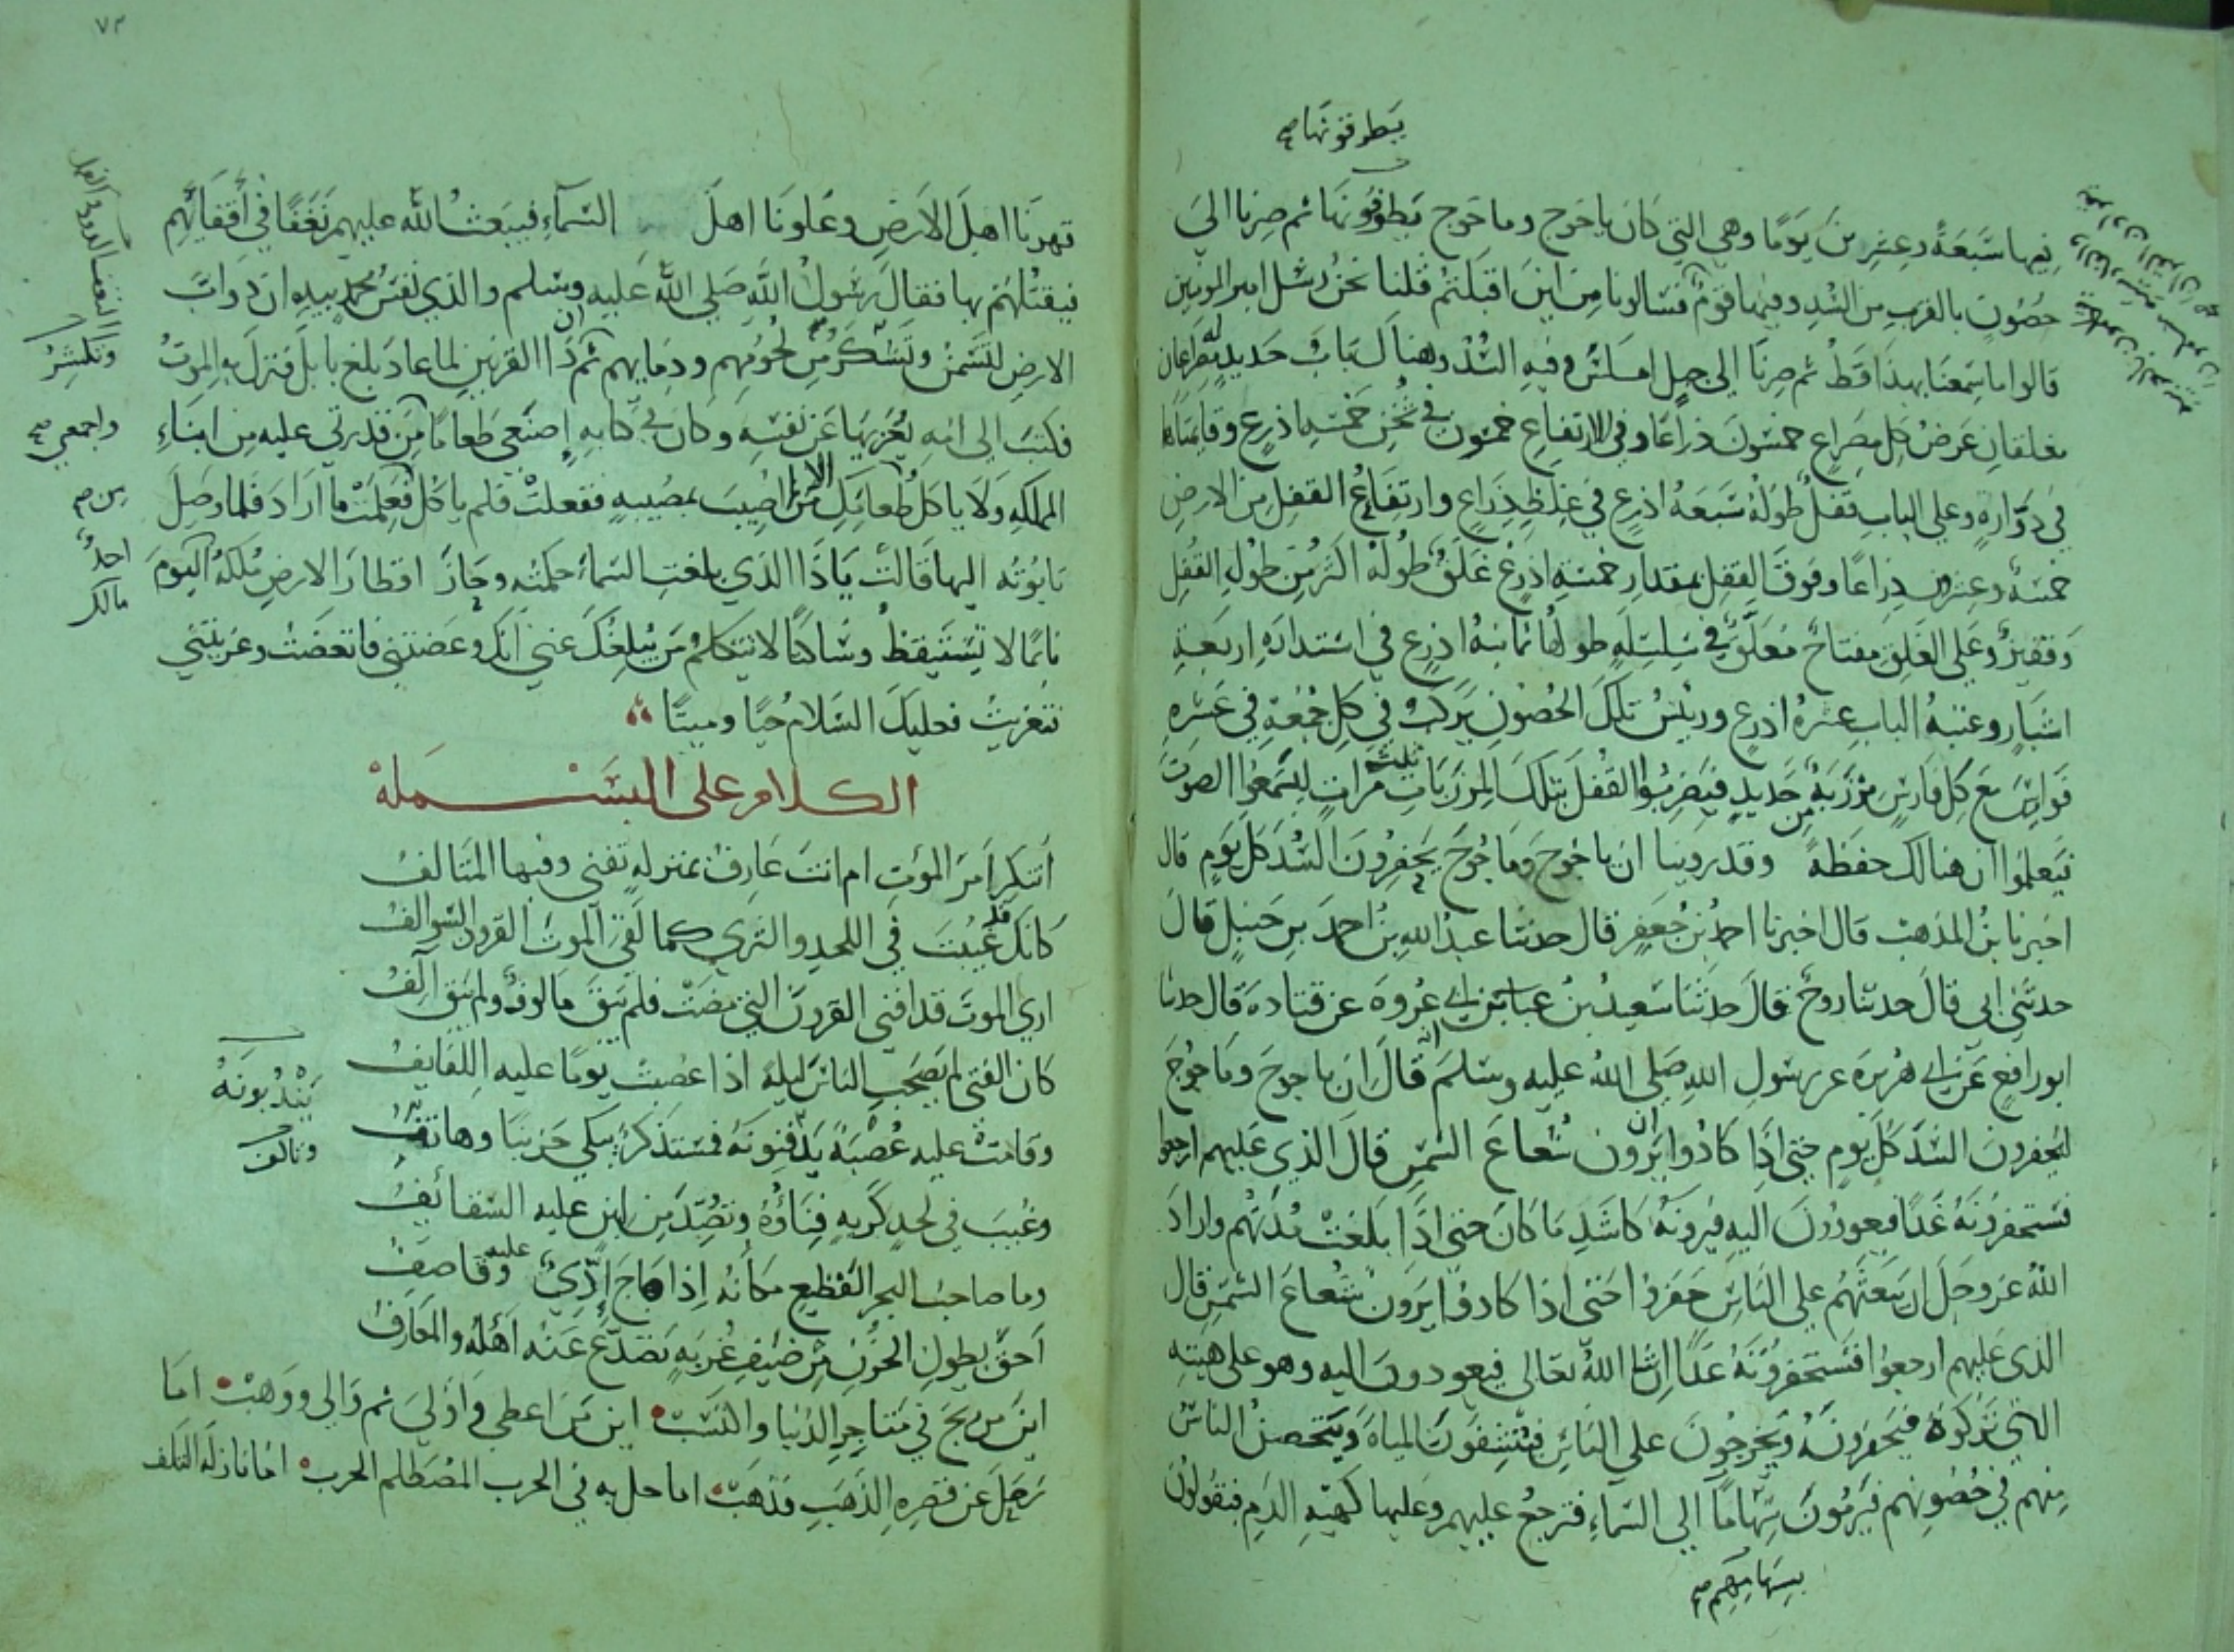 يطرقونها صح
فيها سَبعَةً وعِشرِينَ يَومًا وهي التي كانَ ياجوج وماجوج يطوفونها ثم صِرنا الىَ
حصُونٍ بالقربِ من السُدِ وفيها قومٌ فسَالونا مِن اينَ اقبَلتُم قلنا نحنُ رسُل امير المومنين
قالوا ما سَمِعنَا بهذَا قطُ ثم صِرنَا الي جبلٍ املسَ وفيهِ السُدُ وهناك بَابٌ حَديدٍ له مصراعان
مغلقانِ عَرضُ كل مِصراعٍ خمسُونَ ذراعًا وفي الارتفاعِ خمسُون في ثُخنِ خمسَةِ اذرعٍ وقايمتاها
في دوّارةٍ وعلي البابِ قفلٌ طولُهُ سَبعَةُ اذرعٍ في غِلظِ ذِراعٍ وارتفاعُ القفلِ مِن الارضِ
خمسَةٌ وعشرون ذِراعًا وفوقَ القِفلِ بمقدارِ خمسَةِ اذرعٍ غَلقٌ طُولهُ اكثرُ مِن طُولِ القُفلِ
وقفيزٌ وعَلي الغَلقِ مفتاحٌ مُعَلّقٌ في سِلسِلَةٍ طولهُا ثمانيةُ اذرعٍ في استدارَةِ اربَعةِ
اشبَارٍ وعتبَةُ البابِ عشرةُ اذرعٍ ورئيسُ تلكَ الحُصُونِ يَركبُ في كلِ جُمعَةٍ في عَشرةِ
فَوارِسَ مَعَ كلِ فارسٍ مِرزَبَةٌ من حَديدٍ فيَضرِبُوا القُفلَ بتلكَ المِرزبَاتِ ثلث مَراتٍ ليَسَمعُوا الصَوتَ
فيَعلمُوا ان هنالك حفظةً وقد رُوِينا ان ياجُوجَ ومَاجُوجَ يَحفِرُونَ السُدَّ كلَ يَومٍ قال
اخبرنا بنُ المذهب قال اخبرنا احمدُ بنُ جَعفرٍ قال حدثنا عبدُ اللهِ بنُ احمدَ بنِ حَنبلٍ قالَ
حدثني ابي قالَ حدثنا روحٌ قالَ حدثَنَا سَعِيدُ بنُ ابي عُروةَ عن قتادةَ قال حدثنا
ابو رافعٍ عَن ابي هُريرَةَ عن رسُولِ اللهِ صَلي اللهُ عليهِ وسَلمَ انه قالَ ان ياجوجَ ومَاجُوجَ
ليَحفرونَ السُدَّ كلَ يومٍ حتي اذَا كادُوا ان يَرَون شُعاعَ الشمسِ قالَ الذي عَليهم ارجعوا
فستحفرُونَهُ غَدًا فيعودُونَ اليهِ فيَرونهُ كاشَدِ مَا كانَ حتي اذَا بَلغَت مُدتهُم وارادَ
اللهُ عز وجلَ ان يَبعثَهُم علي النَاسِ حَفَرُوا حَتي اذا كادُوا يَرَون شُعاعَ الشمسِ قال
الذي عَليهم ارجعُوا فسَتحفرُونَهُ غدًا ان شا اللهُ تعالي فيعودونَ اليه وهو علي هَيئتِه
التي تركوهُ فيَحفرونَهُ ويَخرجُونَ علي النَاسِ فيُنشفَونَ المياهَ ويَتحصنُ الناسُ
منهم في حُصُونهم فيَرمُونَ سِهامًا الي السَماءِ فترجعُ عليهم وعليها كهيئةِ الدمِ فيقولونَ
بِسِهامِهِم صح
٧٣
قهرنَا اهلَ الارضِ وعَلونَا اهلَ السَماءِ فيبَعثُ اللهُ عليهم نَغَفًا في اقفَائِهِم
فيقتُلهُم بها فقالَ رسُولُ اللهِ صَلي اللهُ عَليهِ وسَلم والذي نفسُ محمدٍ بيدِهِ ان دَوابَّ
الارضِ لتَسَمنُ وتَسكرُ مِن لحُومِهِم ودِمايهم ثم ان ذا القرنينِ لما عادَ بلغ بابلَ فنزلَ به الموتُ
فكتبَ الي امهِ يعُزيهَا عَن نفسِهِ وكان في كتابهِ اِصنَعي طعامًا مَن قدرتي عليه مِن ابناءِ
المملكةِ ولَا ياكل طعامَكِ الا من اصِيبَ بمصُيبةٍ ففعلت فلم ياكل فعَلِمَت ما ارادَ فلما وصَلَ
تابُوتُه اليها قالت يَاذَا الذي بلغتِ السماءَ حكمتُه وجازَ اقطارَ الارضِ مُلكُهُ اليومَ
نايمًا لا تَستَيقظُ وسَاكتًا لا تتكلمُ مَن يُبلِغُكَ عني انكَ وعَضتني فاتعَضتُ وعزيتني
فتعزيتُ فعليكَ السَلامُ حَيًا وميتًا
وتكشِرُ
واجمعي صح
احدٌ
مالك
الكلام على البسملة
اَتنكِر اَمرَ المَوتِ ام انتَ عَارِفٌ بمنزلةٍ تفني وفيها المتَالفُ
كانكَ قد غُيبتَ في اللحدِ والثري كما لَقيَ الموتَ القرونُ السَوالفُ
اري الموتَ قد افني القرونَ التي مضَت فلم يَبقَ مالوفٌ ولم يَبقَ آلِفُ
كان الفتي لم يَصحَبِ الناسَ ليلةً اذا عصِبتْ يومًا عليهِ اللفايفُ
وقامَت عليهِ عُصبَةٌ يَدفِنونَهُ فمستذكرٌ يبكي حَزينًا وهاتفُ
وغُيبَ في لحدٍ كَريهٍ فِنَاؤُهُ ونُضِّدَ مِن لبنٍ عليه السَقائِفُ
يَنْدُبونَهُ
وما صاحبُ البحر الفظيعِ مكانُه اِذا هاجَ اِذيٌ عليه وقاصِفُ
اَحَقَّ بطولِ الحُزنِ مِن ضَيفِ غُربةٍ تصَدّعَ عَنه اَهلُه والمَعارفُ
اينَ من ربحَ في متاجرِ الدُنيا واكتسَبَ اين مَن اعطي واَولي ثم والي ووَهَبَ امَا
رَحَلَ عن قصرِهِ الذهَبِ فذهَبَ اما حل به في الحرب المصُطلم الحرب اما نازله التلف